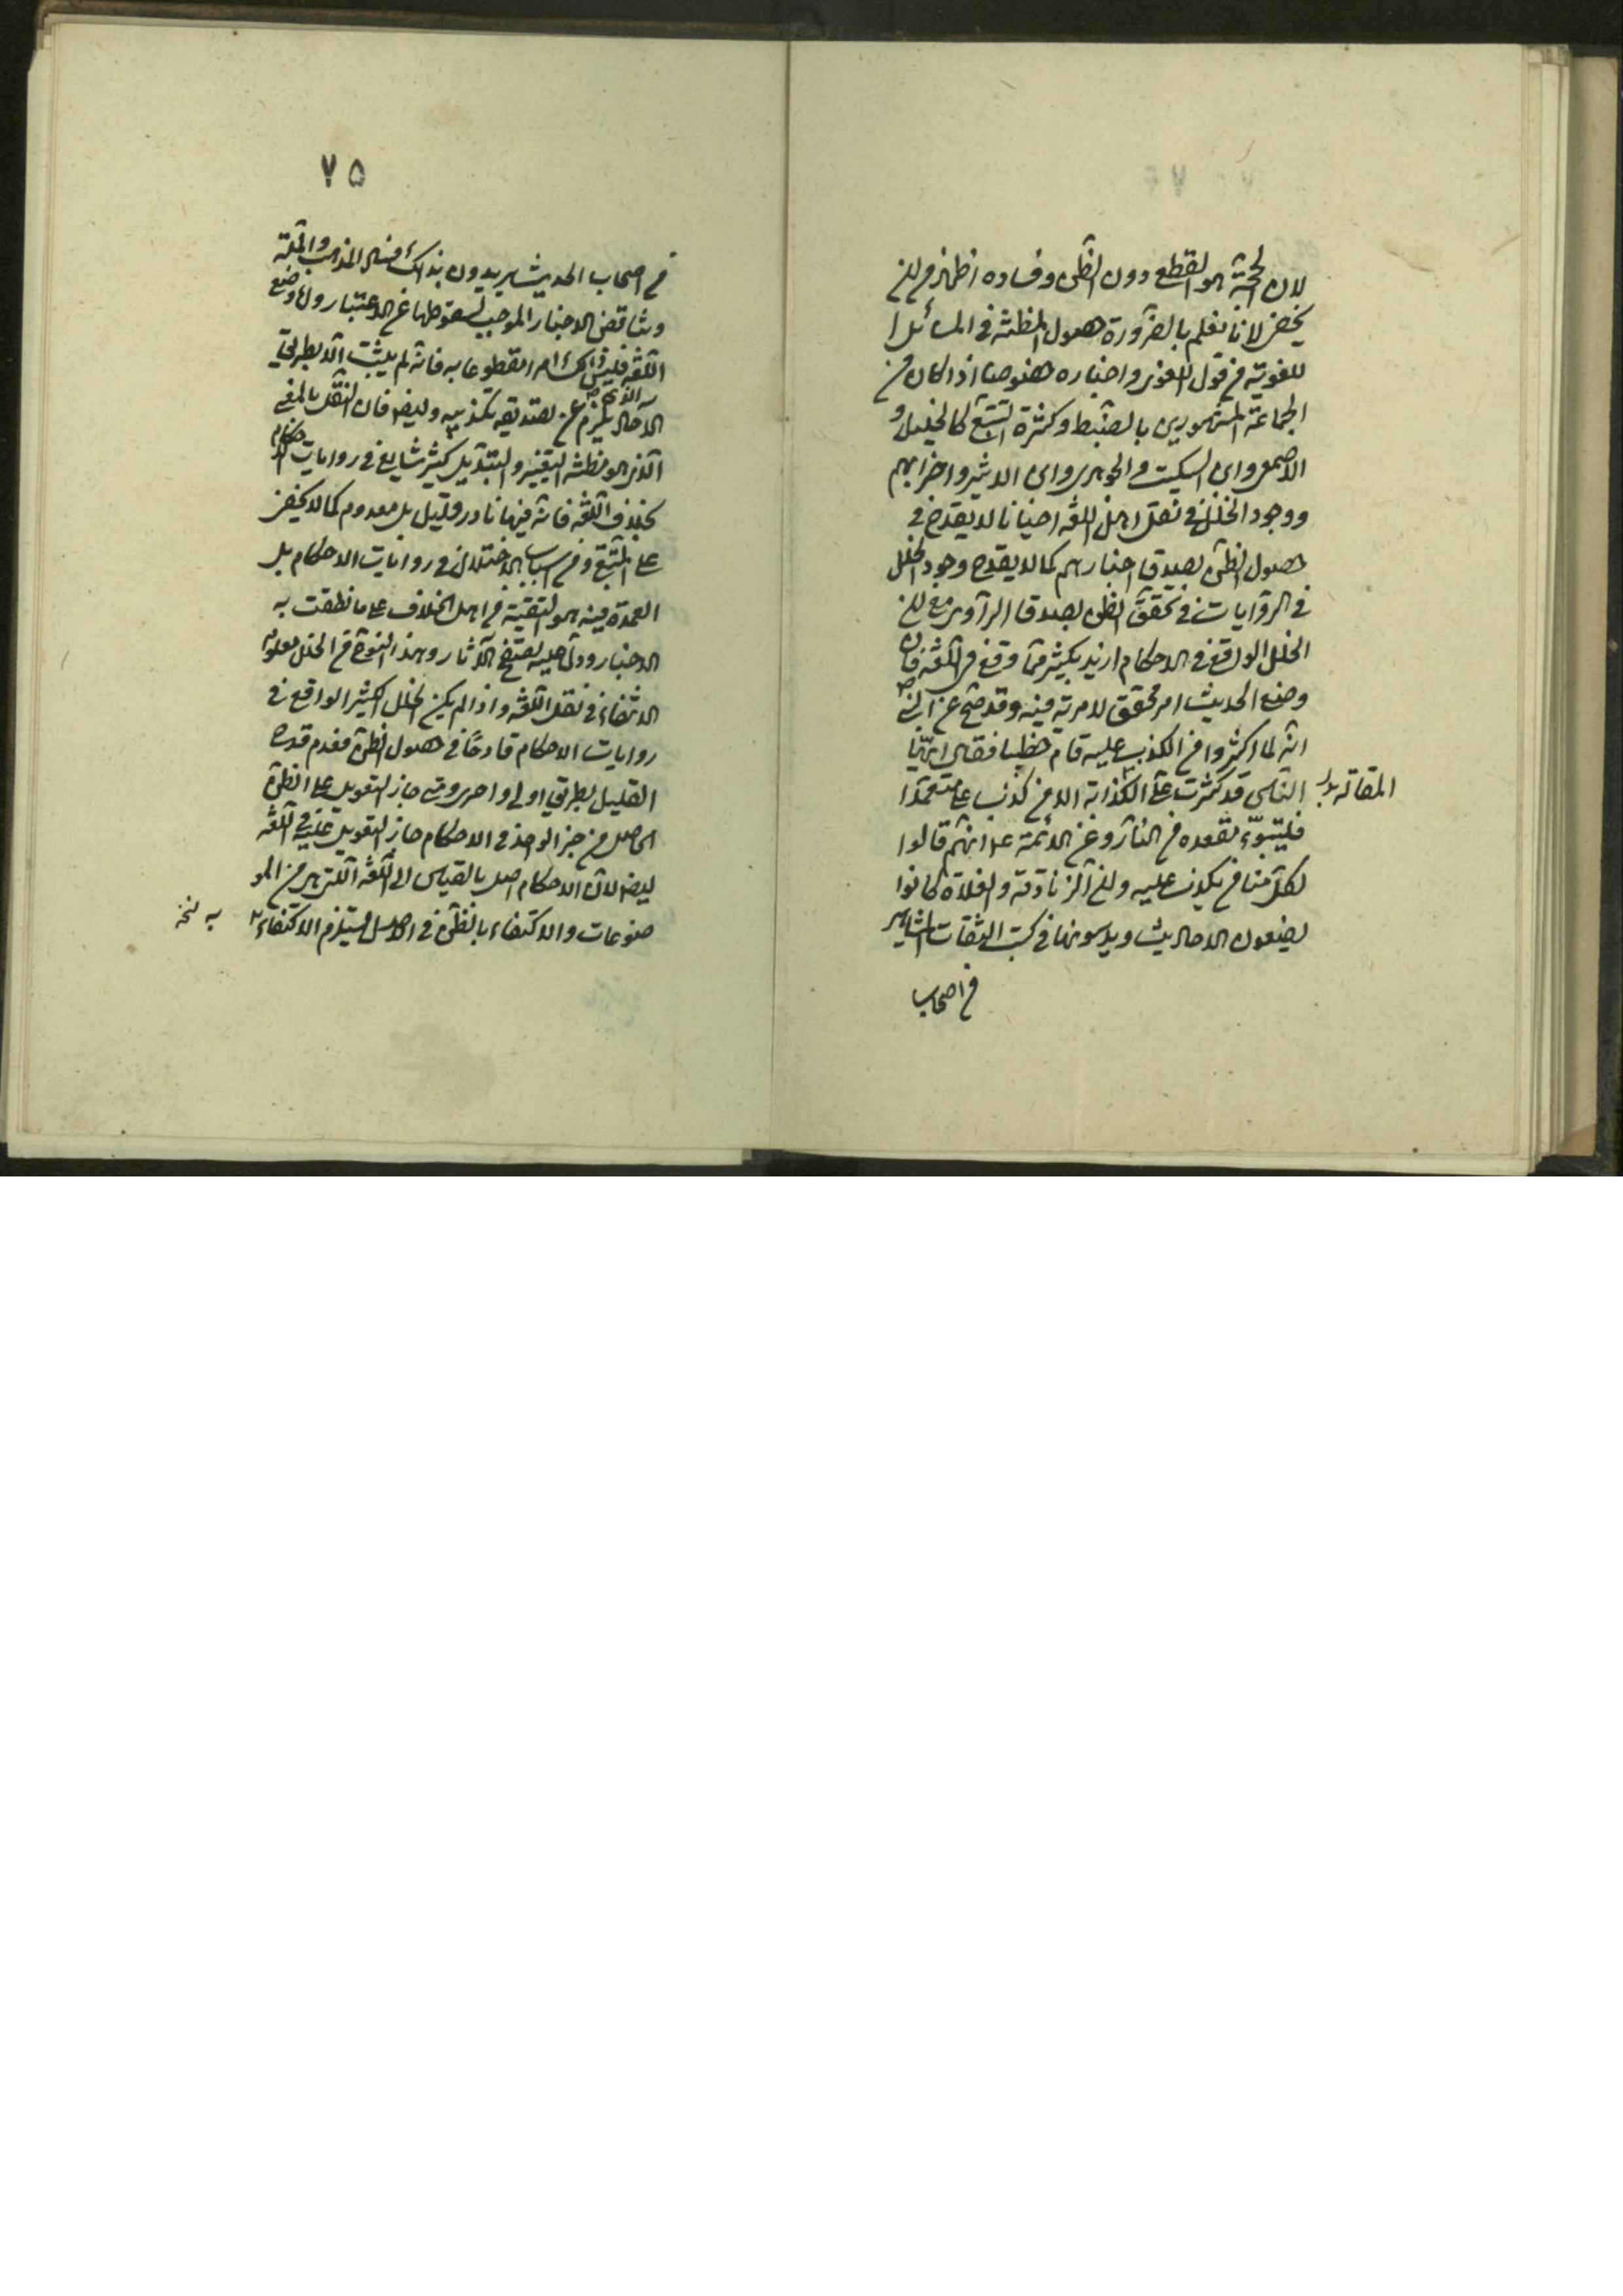 لان الحجّة هو القطع دون الظن وفساده اظهر من ان
يخفى لانا نعلم بالضرورة حصول المظنّة فى المسائل ا
للغوية من قول اللغوى واخباره خصوصا اذا كان من
الجماعة المشهورين بالضبط وكثرة التتبّع كالخليل و
الاصمعى وابن السكيت والجوهرى وابن الاثير واضرابهم
ووجود الخلل فى نقل اهل اللغة احيانا لا يقدح فى
حصول الظن بصدق اخبارهم كما لا يقدح وجود الخلل
فى الروايات فى تحقّق الظن بصدق الراوى مع ان
الخلل الواقع فى الاحكام ازيد بكثير ممّا وقع فى اللغة فان
وضع الحديث امر محقق لا مرية فيه وقد صحّ عن النبى ص
انه لما اكثروا من الكذب عليه قام خطيبا فقال ايّها
الناس قد كثرت علىّ الكذابة الا من كذب علىّ متعمّدا
المقالة بدل
فليتبوّء مقعده من النار وعن الائمة ع انهم قالوا
لكلّ منا من يكذب عليه وان الزنادقة والغلاة كانوا
يضعون الاحاديث ويدسونها فى كتب الثقات المشاهير
من اصحاب
٧٥
من اصحاب الحديث يريدون بذلك افساد المذهب والملّة
وتناقض الاخبار الموجب لسقوطها عن الاعتبار وامّا وضع
اللغة فليس ذلك امرا مقطوعا به فانه لم يثبت الا بطريق
الآحاد الذى يلزم من تصديقه تكذيبه وايضا فان النقل بالمعنى
الذى هو مظنّة التغيير والتبديل كثير شايع فى روايات الاحكام
بخلاف اللغة فانه فيها نادر قليل بل معدوم كما لا يخفى
على المتتبّع ومن اسباب الاختلال فى روايات الاحكام بل
العمدة فيه هو التقية من اهل الخلاف على ما نطقت به
الاخبار ودلّ عليه تصفح الآثار وهذا النوع من الخلل معلوم
الانتفاء فى نقل اللغة واذا لم يكن الخلل الكثير الواقع فى
روايات الاحكام قادحًا فى حصول الظن فعدم قدح
القليل بطريق اولى واحرى ومتى جاز التعويل على الظن
الحاصل من خبر الواحد فى الاحكام جاز التعويل عليه فى اللغة
ايضا لان الاحكام اصل بالقياس الى اللغة التى هى من المو
ضوعات والاكتفاء بالظن فى الاصل يستلزم الاكتفاء
به نسخه